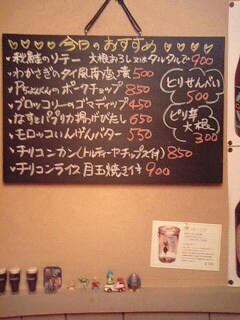 今日のおすすめ
・秋鮭のソテー 大根おろし又はタルタルで900
・わかさぎのタイ風南蛮漬 500
ポークチョップ 850
・ブロッコリーのゴマディップ 450
・なすとパプリカ揚げびたし 650
・モロッコいんげんバター 550
・チリコンカン(トルティーヤチップス付) 850
・チリコンライス 目玉焼き付 900
ヒリせんべい
500
ピリ辛
大根
300